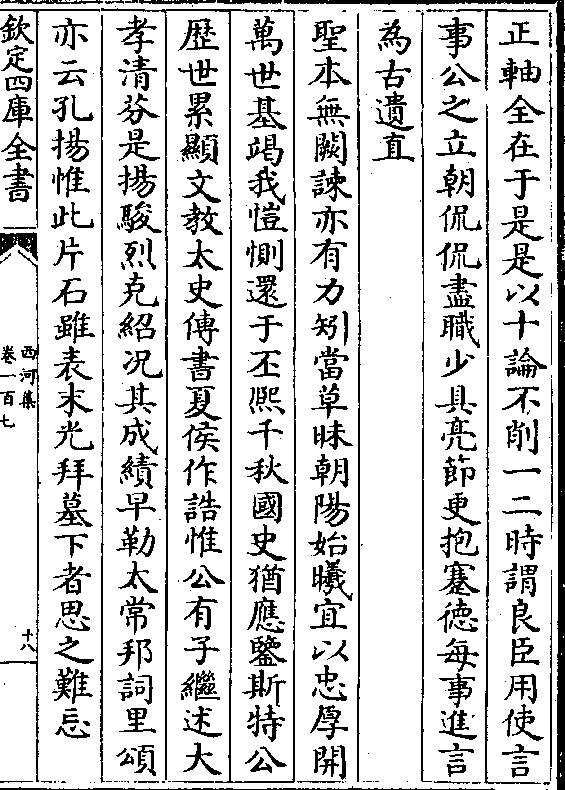 正軸全在于是是以十論不削一二時謂良臣用使言
事公之立朝侃侃盡職少具亮節更抱蹇德每事進言
為古遺直
聖本無闕諫亦有力矧當草昧朝陽始曦宜以忠厚開
萬世基竭我愷惻還于丕熈千秋國史猶應鑒斯特公
歴世累顯文教太史傳書夏侯作誥惟公有子繼述大
孝清芬是揚駿烈克紹况其成績早勒太常邦詞里頌
亦云孔揚惟此片石雖表末光拜墓下者思之難忘
欽定四庫全書
西河集
卷一百七
十八